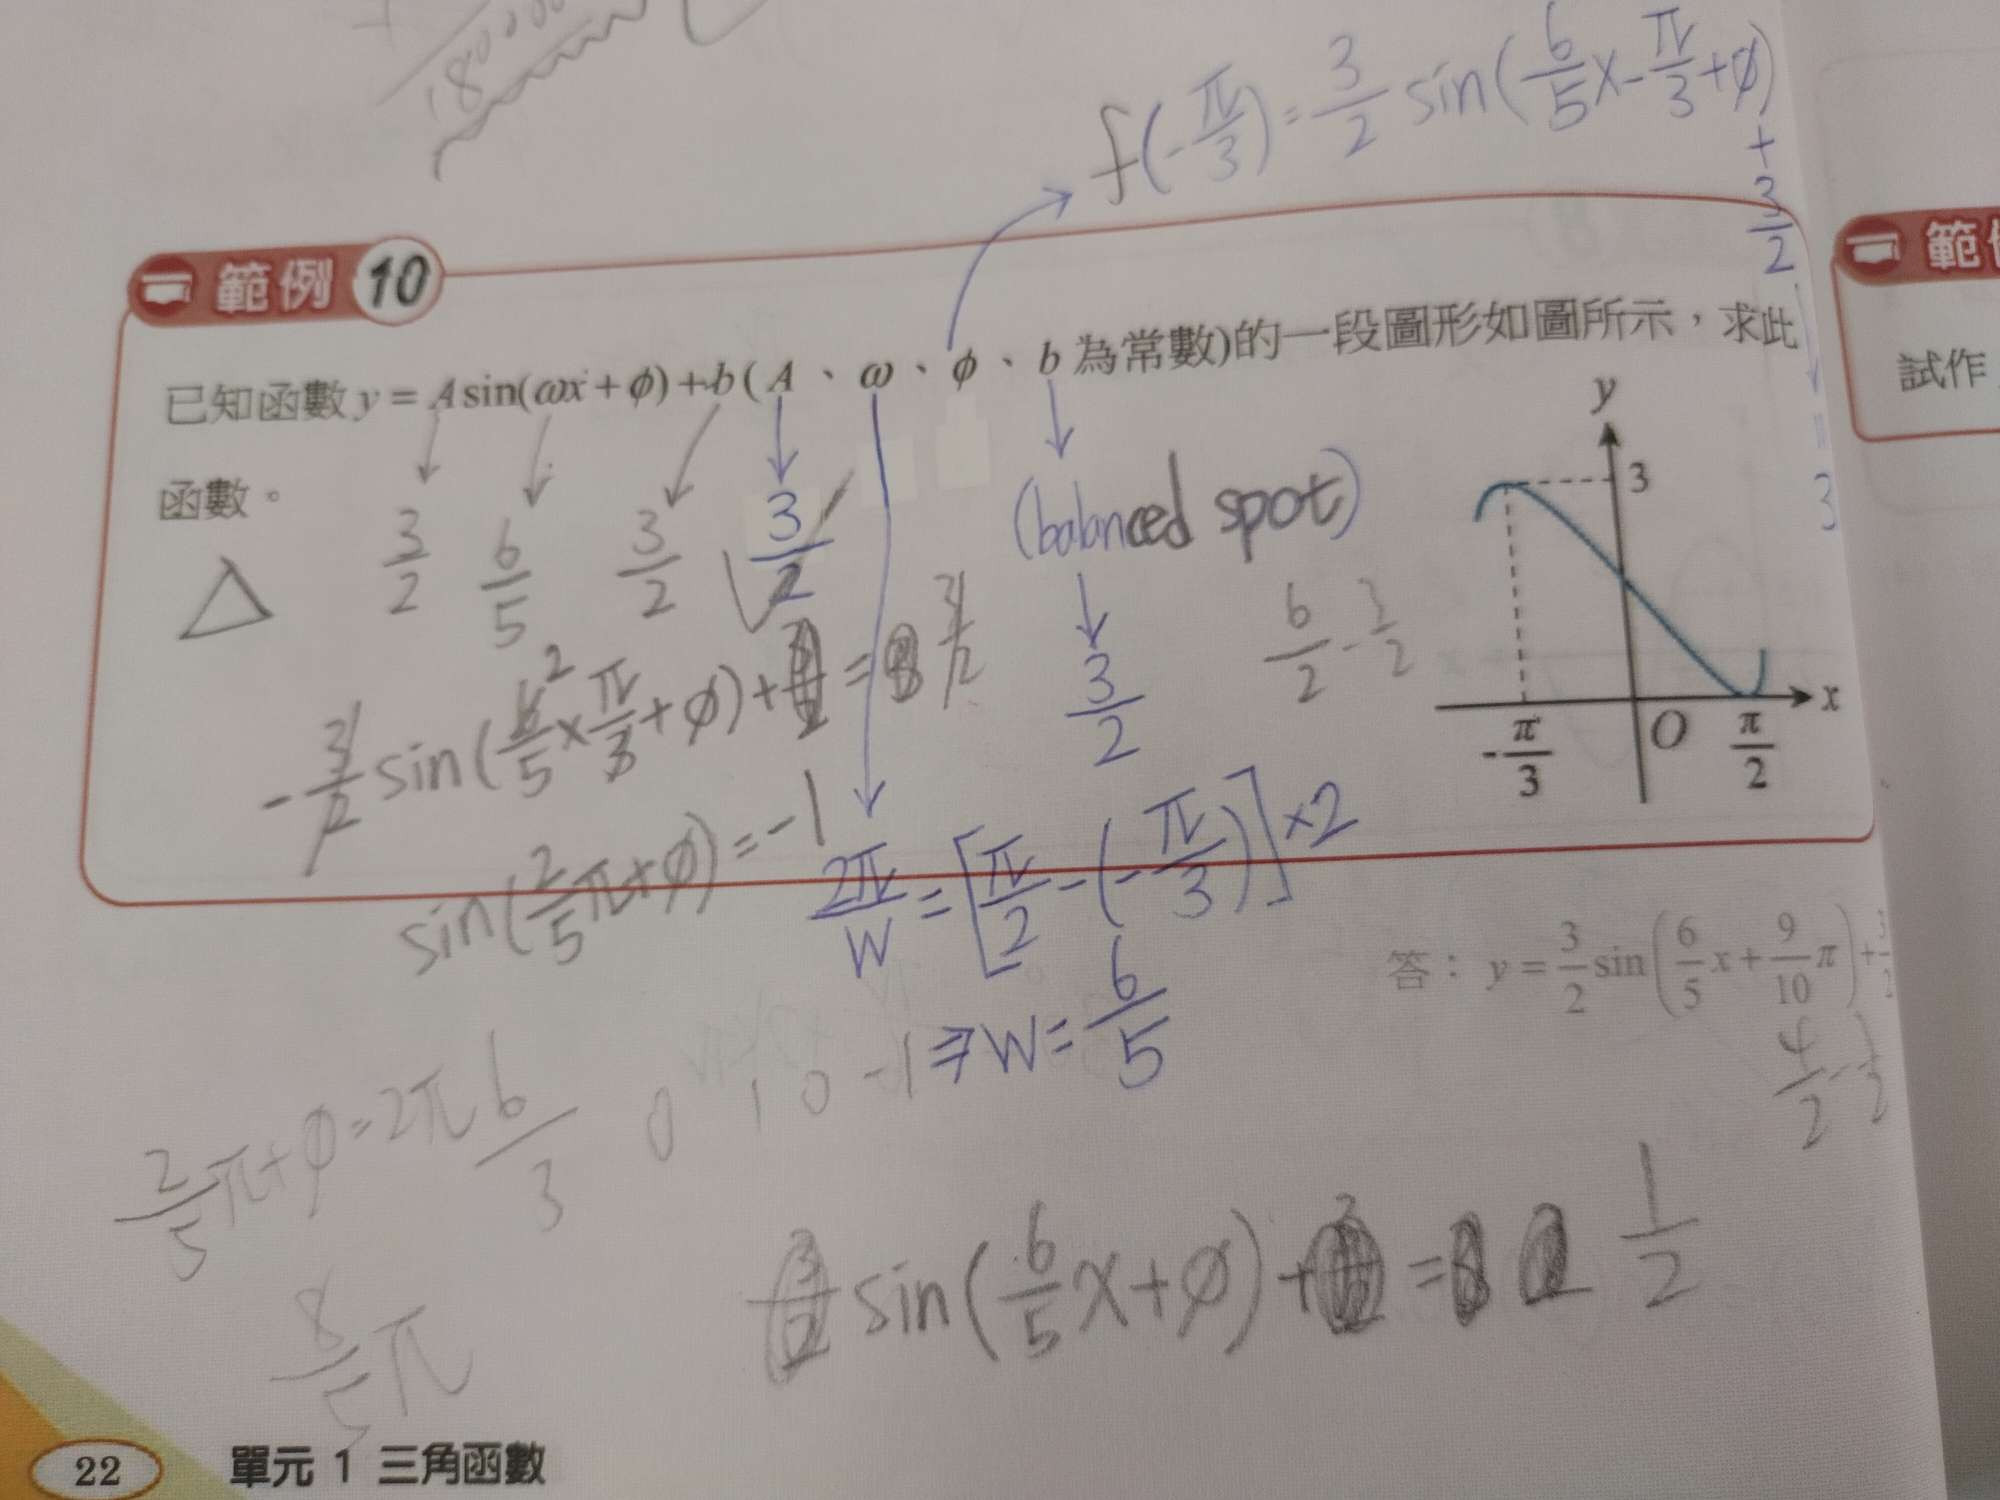 180000
f(-π/3) = 3/2 sin(6/5 x - π/3 + φ) + 3/2
3
範例 10
範
已知函數 y = A sin(ωx + φ) + b ( A、ω、φ、b 為常數)的一段圖形如圖所示，求此
試作
函數。
3/2 6/5 3/2 3/2 (balanced spot)
3/2
6/2 - 3/2
y
3
-π/3 O π/2 x
-3/2 sin(6/5 × π/3 + φ) + = 3/2
2
sin(2/5 π + φ) = -1
2π/W = [π/2 - (-π/3)] × 2
⇒ W = 6/5
答： y = 3/2 sin(6/5 x + 9/10 π) + 3/2
4/2 - 1/2
2/5 π + φ = 2π 6/3
0 1 0 -1
8/5 π
3/2 sin(6/5 x + φ) + = 1/2
22 單元 1 三角函數